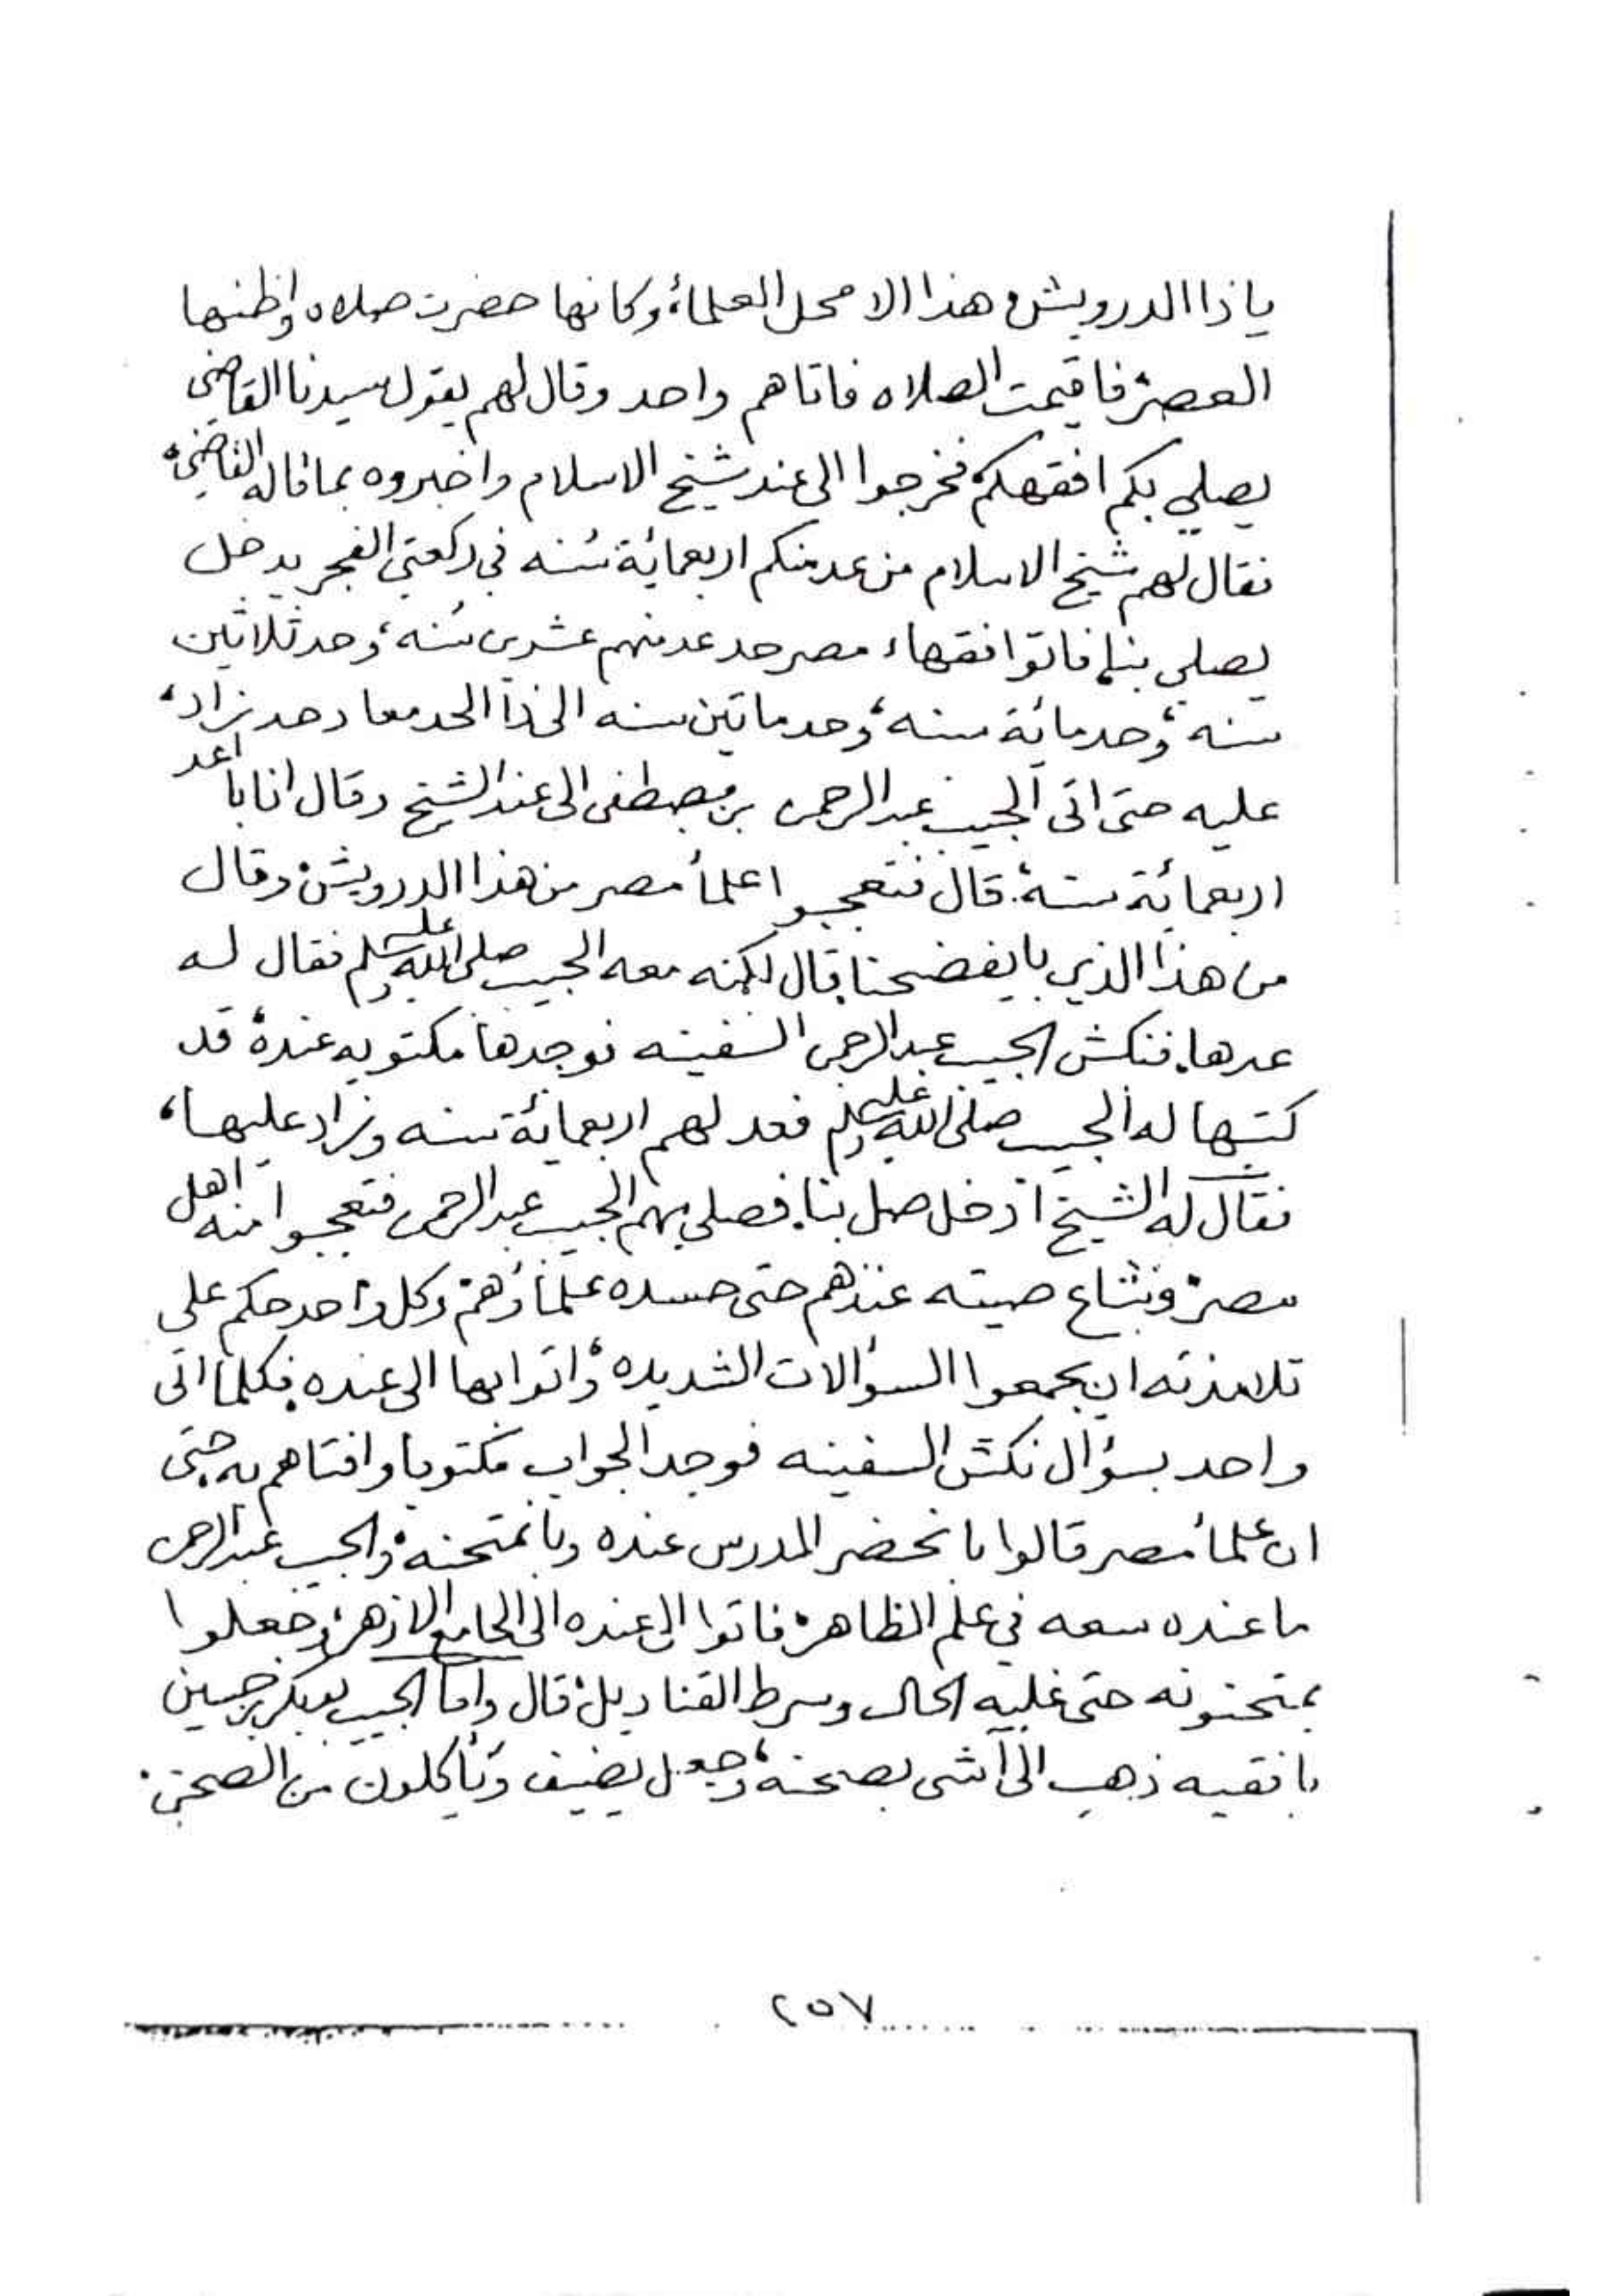 ياذا الدرويش هذا الا محل العلماء وكانها حضرت صلاه واظنها
العصر فاقيمت الصلاه فاتاهم واحد وقال لهم يقول سيدنا القاضي
يصلي بكم افقهكم فخرجوا الى عند شيخ الاسلام واخبروه بما قاله القاضي،
فقال لهم شيخ الاسلام من عد منكم اربعمائة سنه في ركعتي الفجر يدخل
يصلي بنا، فاتوا فقهاء مصر حد عد منهم عشرين سنه، وحد ثلاثين
سنه، وحد مائة سنه، وحد ماتين سنه الى ذا الحد معاد حد زاد،
عليه حتى اتى الحبيب عبدالرحمن بن مصطفى الى عند الشيخ وقال انا با اعد
اربعمائة سنة. قال فتعجبوا علمأ مصر من هذا الدرويش وقال
من هذا الذي با يفضحنا، قال لكنه معه الحبيب صلى الله عليه وسلم فقال له
عدها، فنكش الحبيب عبدالرحمن السفينه فوجدها مكتوبه عنده قد
كتبها له الحبيب صلى الله عليه وسلم فعد لهم اربعمائة سنه وزاد عليها،
فقال له الشيخ ادخل صل بنا. فصلى بهم الحبيب عبدالرحمن فتعجبوا منه اهل
مصر وشاع صيته عندهم حتى حسده علماؤهم وكل واحد حكم على
تلامذته ان يجمعوا السؤالات الشديده واتوا بها الى عنده. فكلما اتى
واحد بسؤال نكش السفينه فوجد الجواب مكتوبا وافتاهم به حتى
ان علمأ مصر قالوا با نحضر المدرس عنده وبا نمتحنه والحبيب عبدالرحمن
ما عنده سعه في علم الظاهر، فاتوا الى عنده الى الجامع الازهر، وجعلوا
يمتحنونه حتى غلبه الحال وسرط القناديل، قال واما الحبيب بوبكر بن حسين
بافقيه ذهب الى آشى بصحنه، وجعل يضيف ويأكلون من الصحن.
٢٥٧